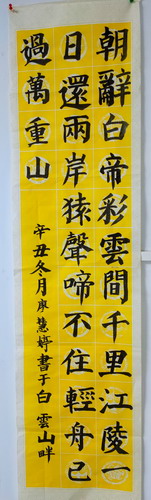 朝辭白帝彩雲間千里江陵一
日還兩岸猿聲啼不住輕舟已
過萬重山
辛丑冬月廖慧婷書于白雲山畔